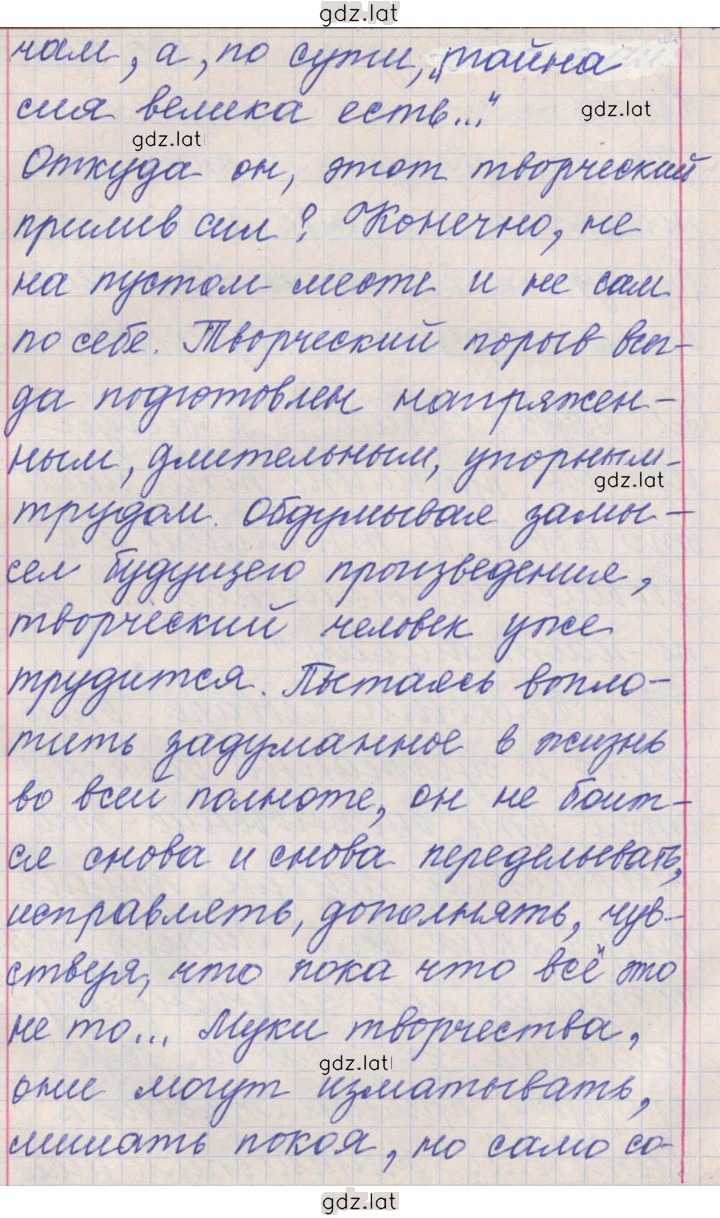 gdz.lat
чам, а, по сути, „тайна
сия велика есть..."
gdz.lat
gdz.lat
Откуда он, этот творческий
прилив сил? Конечно, не
на пустом месте и не сам
по себе. Творческий порыв всег-
да подготовлен напряжен-
ным, длительным, упорным
gdz.lat
трудом. Обдумывая замы-
сел будущего произведения,
творческий человек уже
трудится. Пытаясь вопло-
тить задуманное в жизнь
во всей полноте, он не боит-
ся снова и снова переделывать,
исправлять, дополнять, чув-
ствуя, что пока что всё это
не то... Муки творчества,
gdz.lat
они могут изматывать,
лишать покоя, но само со-
gdz.lat